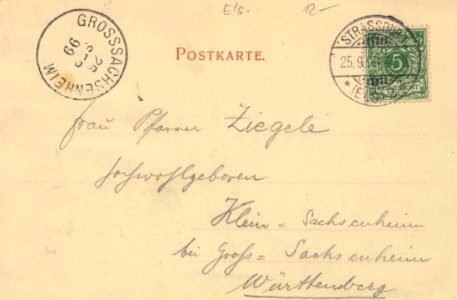 E/s. 12.-
GROSSSACHSENHEIM
99
POSTKARTE.
STRASSBURG
25.9.
(ELS.)
5
REICHSPOST
Frau Pfarrer Ziegele
Hochwohlgeboren
Klein = Sachsenheim
bei Groß = Sachsenheim
Württemberg